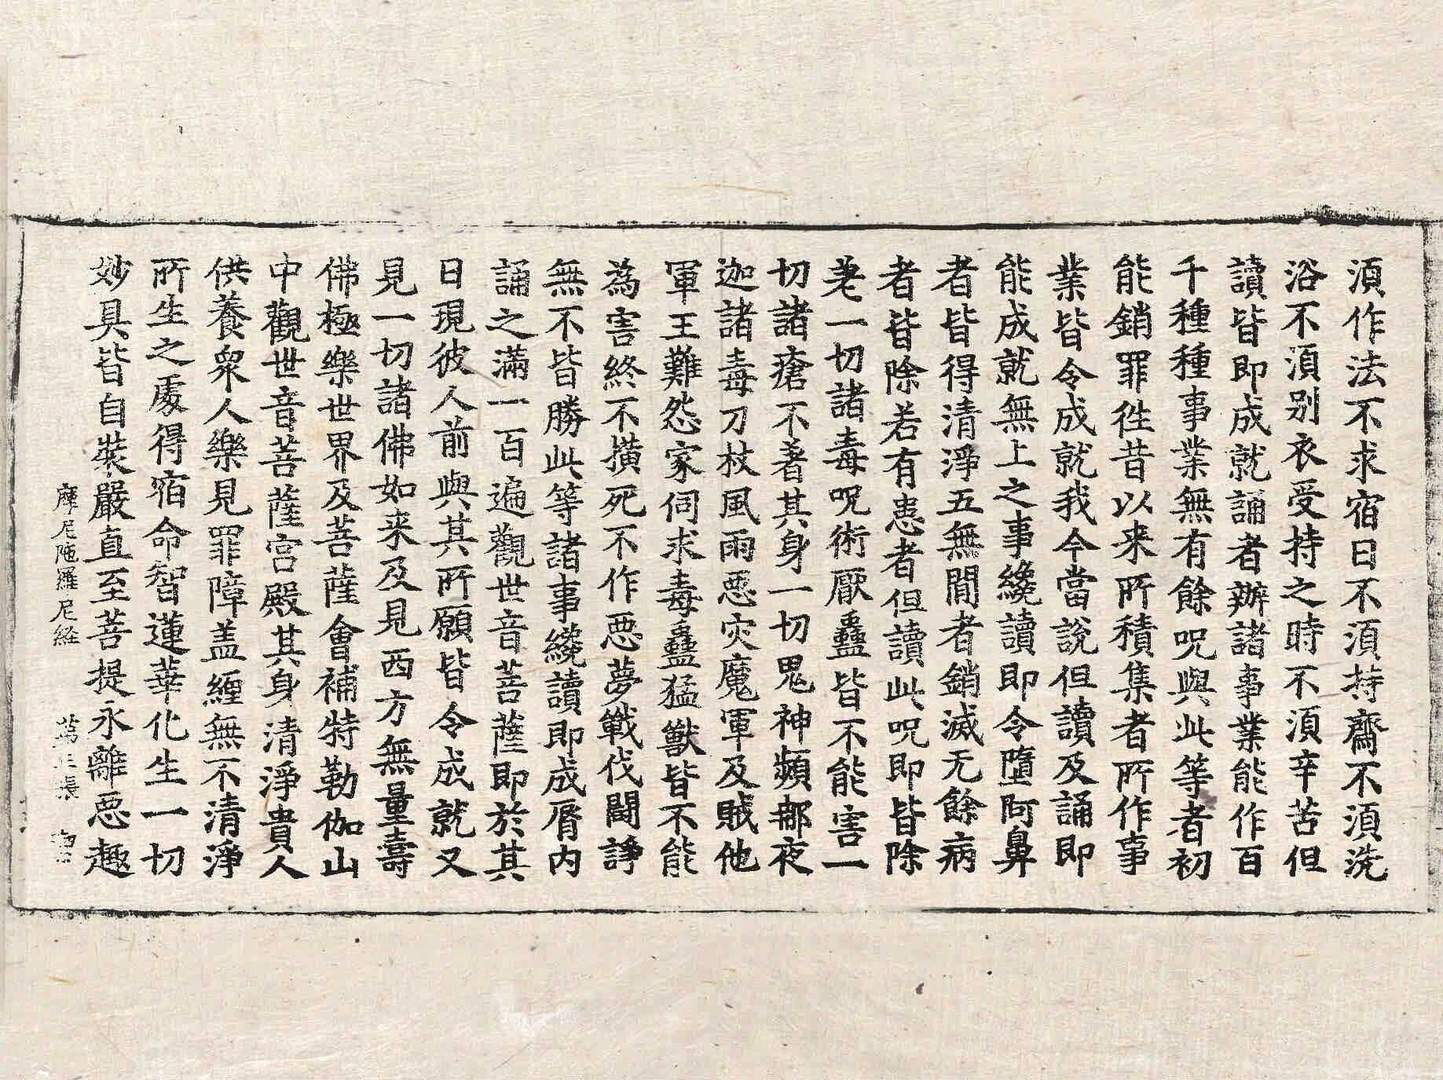 須作法不求宿日不須持齋不須洗
浴不須別衣受持之時不須辛苦但
讀皆即成就誦者辦諸事業能作百
千種種事業無有餘呪與此等者初
能銷罪徃昔以来所積集者所作事
業皆令成就我今當說但讀及誦即
能成就無上之事纔讀即令墮阿鼻
者皆得清淨五無間者銷滅无餘病
者皆除若有患者但讀此呪即皆除
差一切諸毒呪術厭蠱皆不能害一
切諸瘡不著其身一切鬼神頻那夜
迦諸毒刀杖風雨惡灾魔軍及賊他
軍王難怨家伺求毒蠱猛獸皆不能
為害終不橫死不作惡夢戰伐鬪諍
無不皆勝此等諸事纔讀即成脣内
誦之滿一百遍觀世音菩薩即於其
日現彼人前與其所願皆令成就又
見一切諸佛如来及見西方無量壽
佛極樂世界及菩薩會補特勒伽山
中觀世音菩薩宮殿其身清淨貴人
供養衆人樂見罪障盖纏無不清淨
所生之處得宿命智蓮華化生一切
妙具皆自裝嚴直至菩提永離惡趣
摩尼陁羅尼経 第三張